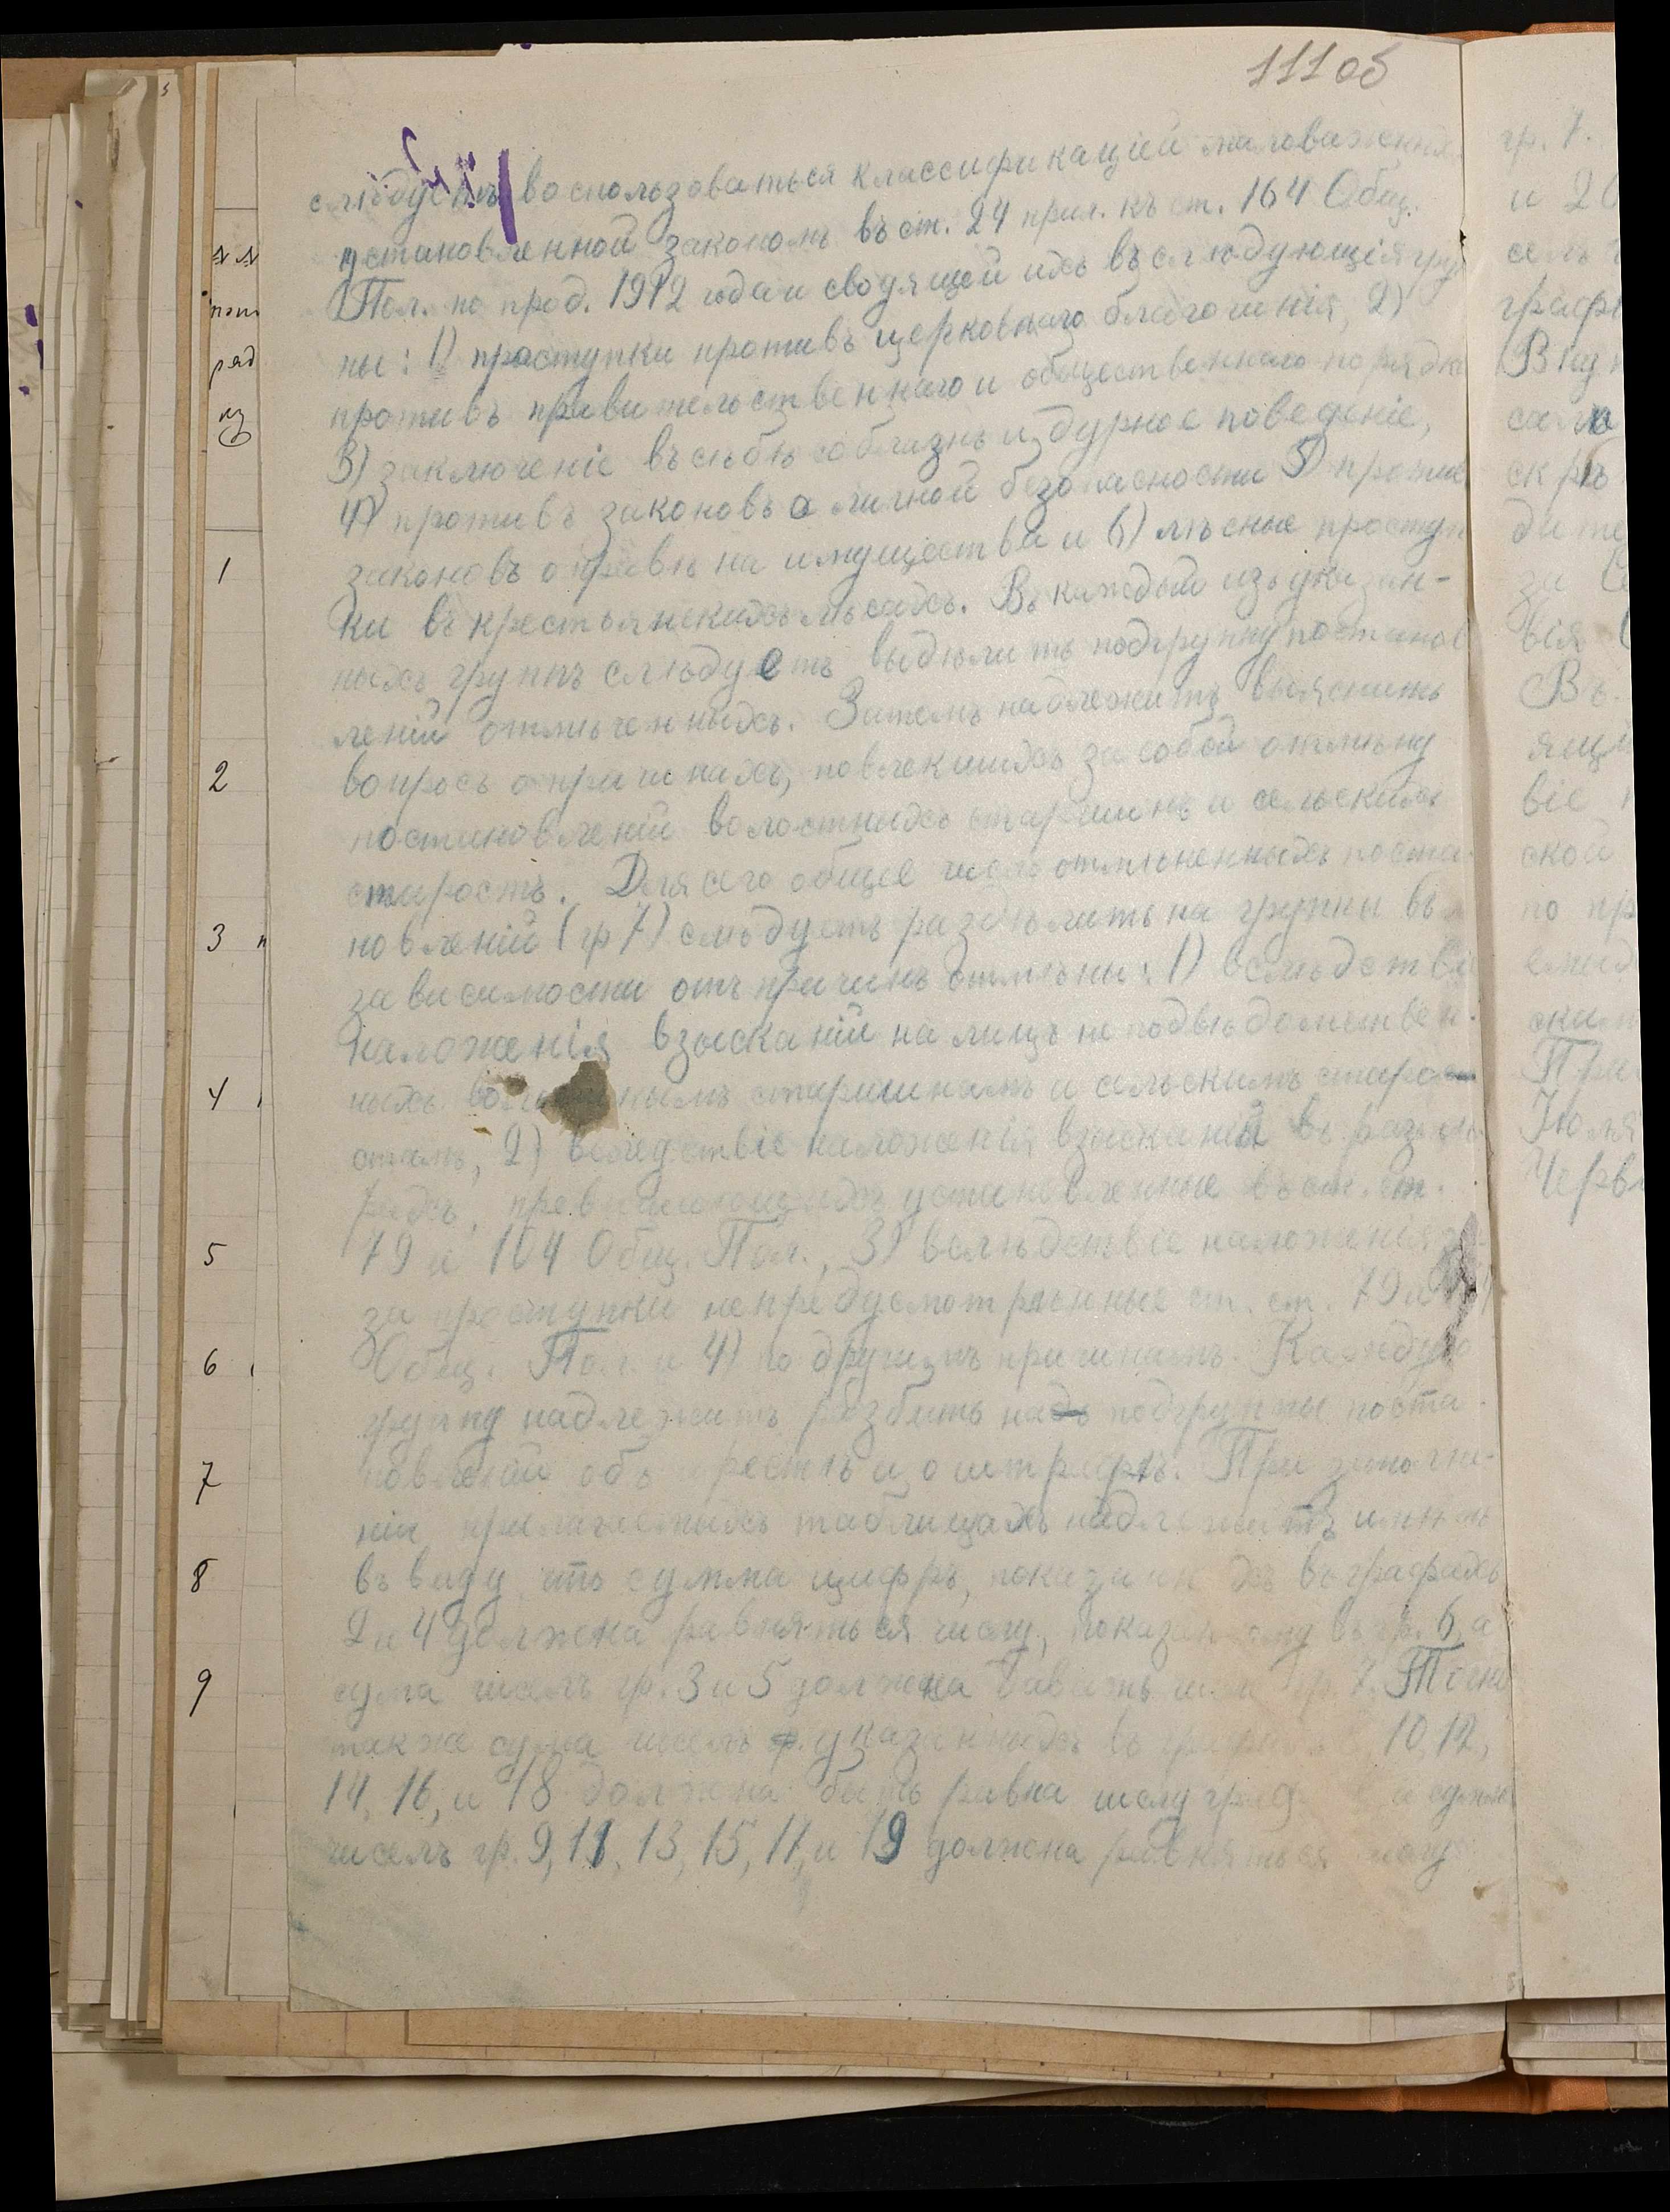 111 об
слѣдуетъ воспользоваться классификаціей маловажныхъ
установленной закономъ въ ст. 24 прил. къ ст. 164 Общ.
Пол. по прод. 1912 года и сводящей ихъ въ слѣдующія груп
пы: 1) проступки противъ церковнаго благочинія, 2)
противъ правительственнаго и общественнаго порядка
3) заключеніе въ себѣ соблазнъ и дурное поведеніе,
4) противъ законовъ о личной безопасности 5) против
законовъ о правѣ на имущества и 6) лѣсные проступ
ки въ крестьянскихъ лѣсахъ. Въ каждой изъ указан-
ныхъ группъ слѣдуетъ выдѣлить подгруппу постанов
леній отмѣненныхъ. Затемъ надлежитъ выяснить
вопросъ о причинахъ, повлекшихъ за собой отмѣну
постановленій волостныхъ старшинъ и сельскихъ
старостъ. Для сего общее число отмѣненныхъ поста-
новленій (гр 7) слѣдуетъ раздѣлить на группы въ
зависимости отъ причинъ отмѣны: 1) вслѣдствіе
наложенія взысканій на лицъ не подвѣдомствен-
ныхъ волостнымъ старшинамъ и сельскимъ старо-
стамъ, 2) вслѣдствіе наложенія взысканій въ размѣ
рахъ, превышающихъ установленные въ ст. ст.
79 и 104 Общ. Пол., 3) вслѣдствіе наложенія
за проступки непредусмотренные ст. ст. 79 и
Общ. Пол и 4) по другимъ причинамъ. Каждую
группу надлежитъ разбить на подгруппы поста-
новленій объ арестѣ и о штрафѣ. При заполне-
ніи прилагаемыхъ таблицахъ надлежитъ имѣть
въ виду что сумма цифръ, показанныхъ въ графахъ
2 и 4 должна равняться числу, показанному въ гр. 6, а
сума чиселъ гр. 3 и 5 должна давать число гр. 7. Точно
также сума чиселъ указанныхъ въ графахъ 10, 12,
14, 16, и 18 должна быть равна числу граф и сумма
чиселъ гр. 9, 11, 13, 15, 17, и 19 должна равняться числу
1
2
3
4
5
6
7
8
9
гр. 7.